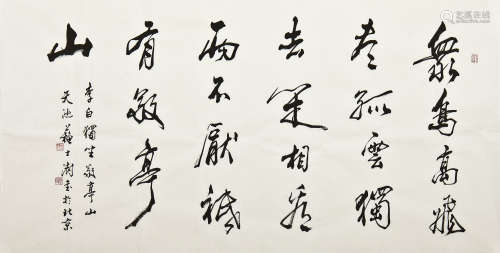 眾鳥高飛
盡孤雲獨
去閑相看
兩不厭祗
有敬亭
山
李白獨坐敬亭山
天池蘇士澍書於北京